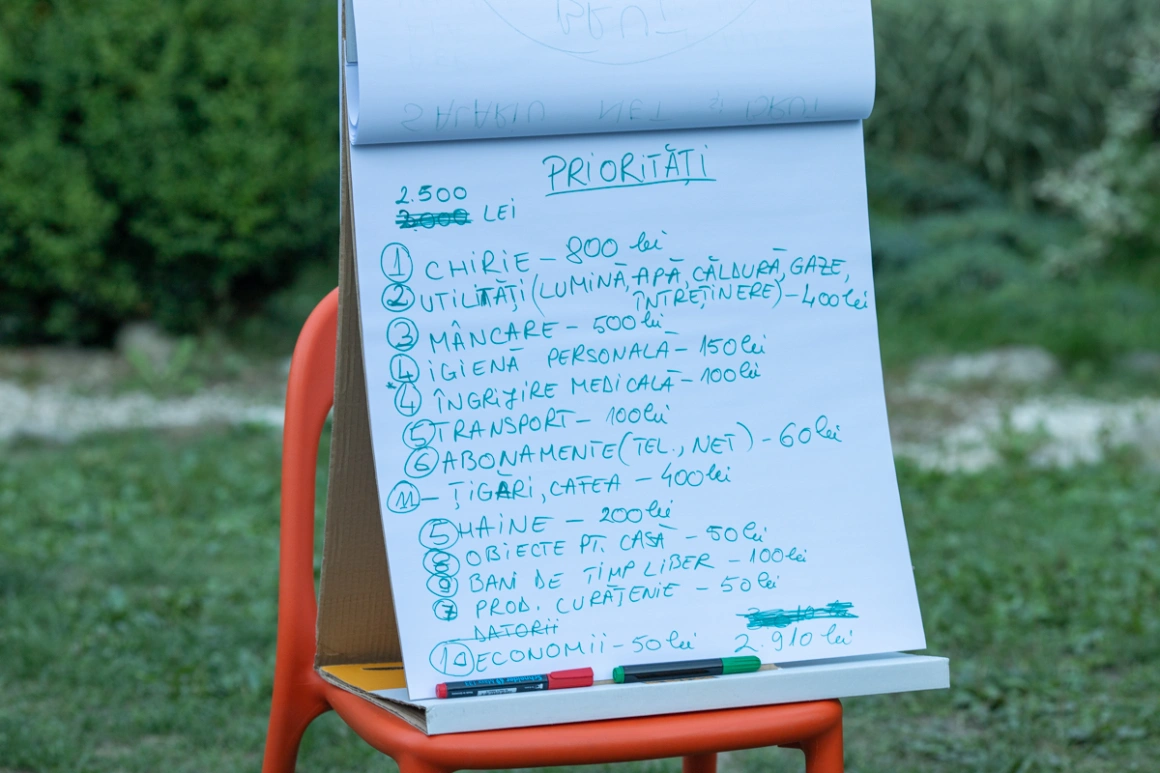 PRIORITĂȚI
2.500
3.000 LEI
1 CHIRIE – 800 lei
2 UTILITĂȚI (LUMINĂ, APĂ, CĂLDURĂ, GAZE,
ÎNTREȚINERE) – 400 lei
3 MÂNCARE – 500 lei
4 IGIENĂ PERSONALĂ – 150 lei
4 ÎNGRIJIRE MEDICALĂ – 100 lei
5 TRANSPORT – 100 lei
6 ABONAMENTE (TEL., NET) – 60 lei
11 – ȚIGĂRI, CAFEA – 400 lei
5 HAINE – 200 lei
8 OBIECTE PT. CASĂ – 50 lei
9 BANI DE TIMP LIBER – 100 lei
7 PROD. CURĂȚENIE – 50 lei
DATORII
10 ECONOMII – 50 lei 2.910 lei